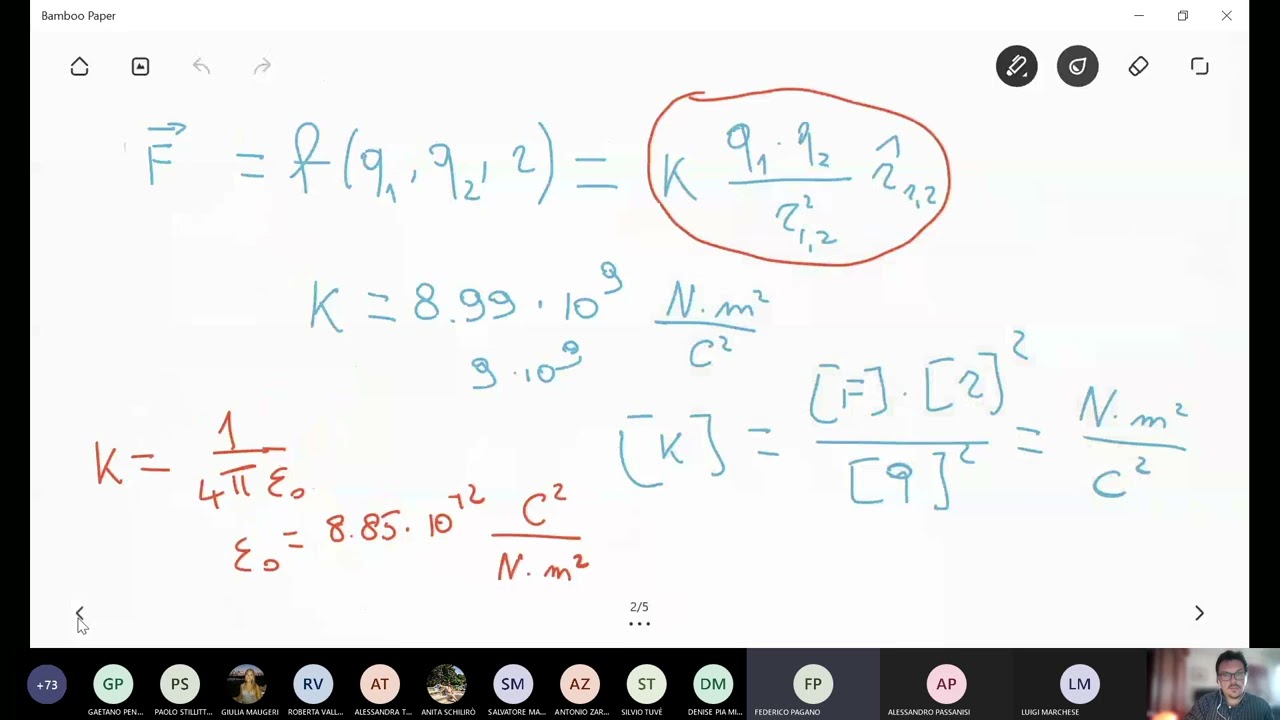 Bamboo Paper
F⃗ = f(q₁, q₂, r) = K q₁·q₂ / r²₁,₂ r̂₁,₂
K = 8.99 · 10⁹ N·m² / C²
9 · 10⁹
[K] = [F]·[r]² / [q]² = N·m² / C²
K = 1 / 4π ε₀
ε₀ = 8.85 · 10⁻¹² C² / N·m²
2/5
+73 GP PS RV AT SM AZ ST DM FP AP LM
GAETANO PEN... PAOLO STILLITT... GIULIA MAUGERI ROBERTA VALL... ALESSANDRA T... ANITA SCHILIRÒ SALVATORE MA... ANTONIO ZAR... SILVIO TUVÈ DENISE PIA MI... FEDERICO PAGANO ALESSANDRO PASSANISI LUIGI MARCHESE